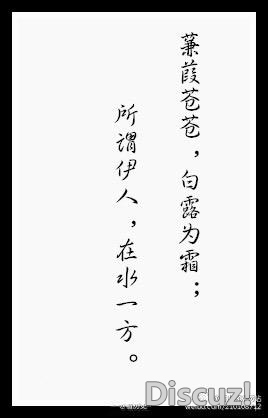 蒹葭苍苍，白露为霜；
所谓伊人，在水一方。
Discuz!
weibo.com/210108712